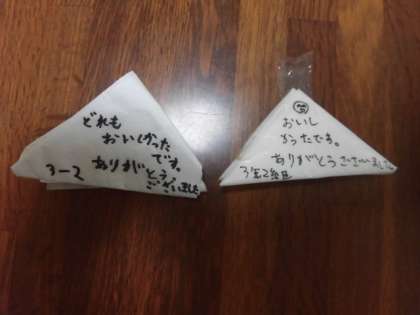 どれも
おいしかった
です。
ありがとう
ございました
3-2
おいし
かったです。
ありがとうございました
3年2組